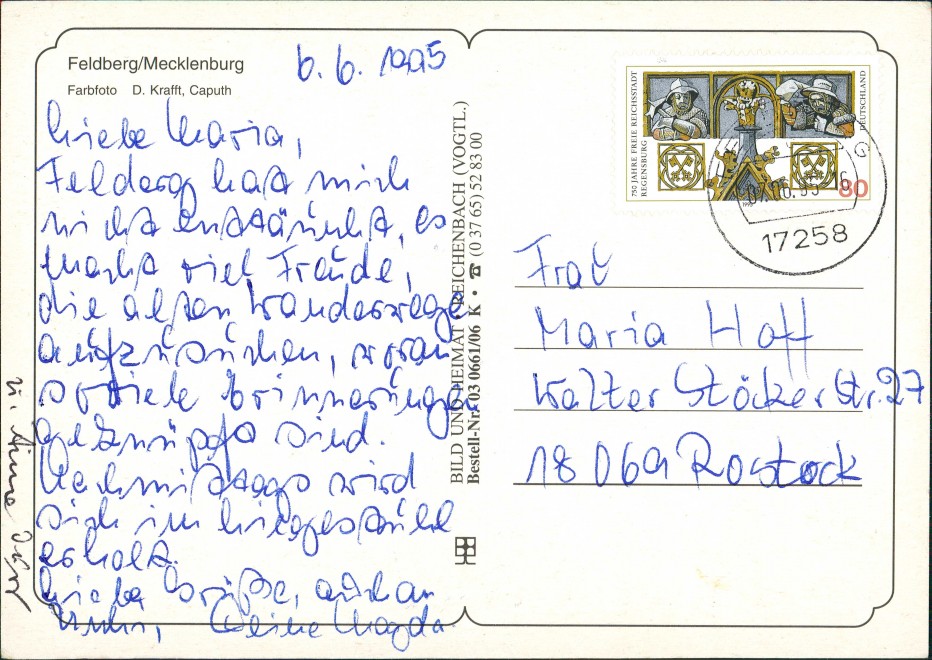 Feldberg/Mecklenburg
Farbfoto D. Krafft, Caputh
6.6.1995
Liebe Maria,
Feldberg hat mich
nicht enttäuscht, es
macht viel Freude,
die alten Wanderwege
aufzusuchen, woran
soviele Erinnerungen
geknüpft sind.
Nachmittags wird
sich im Liegestuhl
erholt.
Liebe Grüße, auch an
Deine Magda
u. Anne
BILD UND HEIMAT REICHENBACH (VOGTL.)
Bestell-Nr. 03 0661/06 K • ☎ (0 37 65) 52 83 00
750 JAHRE FREIE REICHSSTADT
REGENSBURG
DEUTSCHLAND
80
17258
Frau
Maria Hoff
Walter Stöcker Str. 27
18069 Rostock